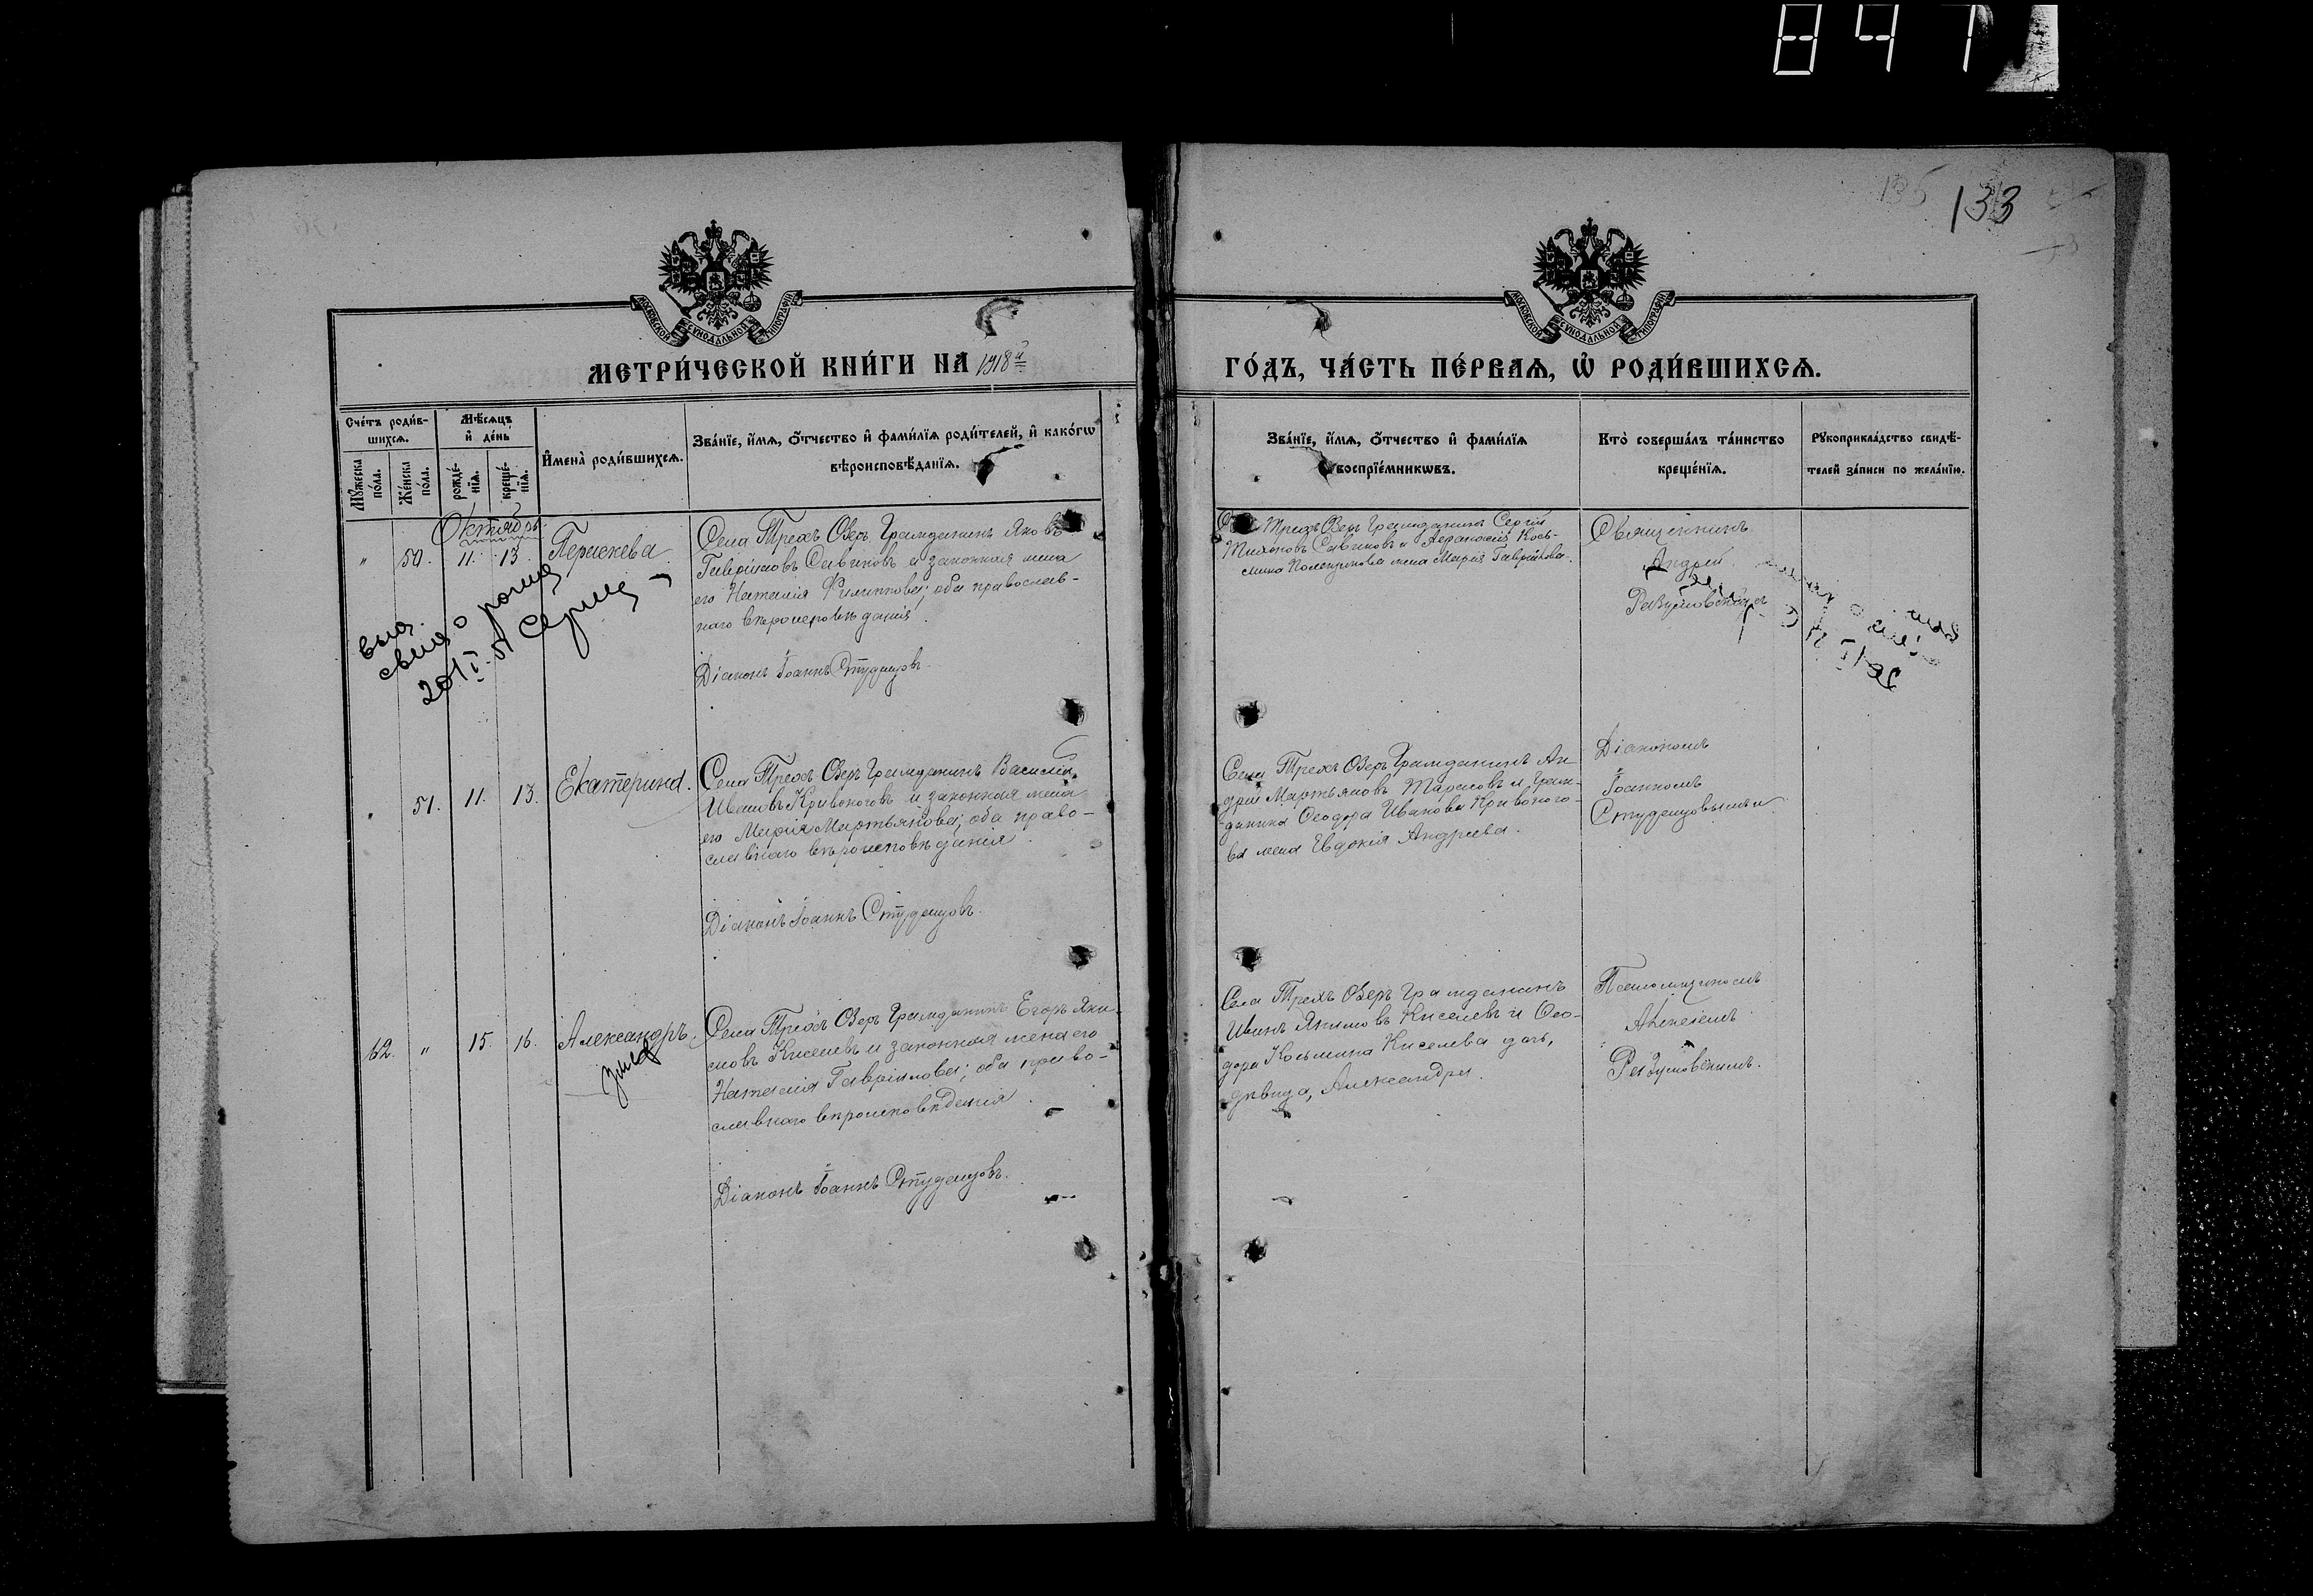 847
135
133
МОСКОВСКОЙ СѴНОДАЛЬНОЙ ТИПОГРАФІИ
МОСКОВСКОЙ СѴНОДАЛЬНОЙ ТИПОГРАФІИ
МЕТРИ́ЧЕСКОЙ КНИ́ГИ НА 1918й
ГО́ДЪ, ЧА́СТЬ ПЕ́РВАѦ, Ѿ РОДИ́ВШИХСѦ.
Сче́тъ роди́в-
шихсѧ.
Мꙋ́жеска по́ла.
Же́нска по́ла.
Мѣ́сѧцъ
и҆ де́нь
рожде́-
нїѧ.
креще́-
нїѧ.
И҆мена̀ роди́вшихсѧ.
Зва́нїе, и҆́мѧ, ѻ҆́тчество и҆ фами́лїѧ роди́телей, и҆ како́гѡ
вѣроисповѣ́данїѧ.
Зва́нїе, и҆́мѧ, ѻ҆́тчество и҆ фами́лїѧ
воспрїе́мникѡвъ.
Кто̀ соверша́лъ та́инство
креще́нїѧ.
Рꙋкоприкла́дство свидѣ́-
телей за́писи по жела́нїю.
Октябрь
" 50. 11. 13. Параскева
Села Трехъ Озеръ Гражданинъ Яковъ
Гавріиловъ Савиновъ и законная жена
его Наталія Филиппова; оба православ-
наго вѣроисповѣданія.
Діаконъ Іоаннъ Студенцовъ.
Трехъ Озеръ Гражданинъ Сергій
Тихоновъ Савиновъ и Аѳанасія Кось-
мина жена Марія Гавріилова.
Священникъ
Андрей
Разумовскій
выд.
свид о рожд
20/I-51
51. 11. 13. Екатерина.
Села Трехъ Озеръ Гражданинъ Василій
Ивановъ Кривоноговъ и законная жена
его Марія Мартьянова; оба право-
славнаго вѣроисповѣданія
Діаконъ Іоаннъ Студенцовъ.
Села Трехъ Озеръ Гражданинъ Ан-
дрей Мартьяновъ Тарасовъ и граж-
данина Ѳеодора Иванова Кривоного-
ва жена Евдокія Андреева.
Діакономъ
Іоанномъ
Студенцовымъ
62. " 15. 16. Александръ.
Села Трехъ Озеръ Гражданинъ Егоръ Яки-
мовъ Киселевъ и законная жена его
Наталія Гавріилова; оба право-
славнаго вѣроисповѣданія
Діаконъ Іоаннъ Студенцовъ.
Села Трехъ Озеръ Гражданинъ
Иванъ Якимовъ Киселевъ и Ѳео-
дора Косьмина Киселева дочь,
дѣвица, Александра.
Псаломщикомъ
Алексіемъ
Разумовскимъ.